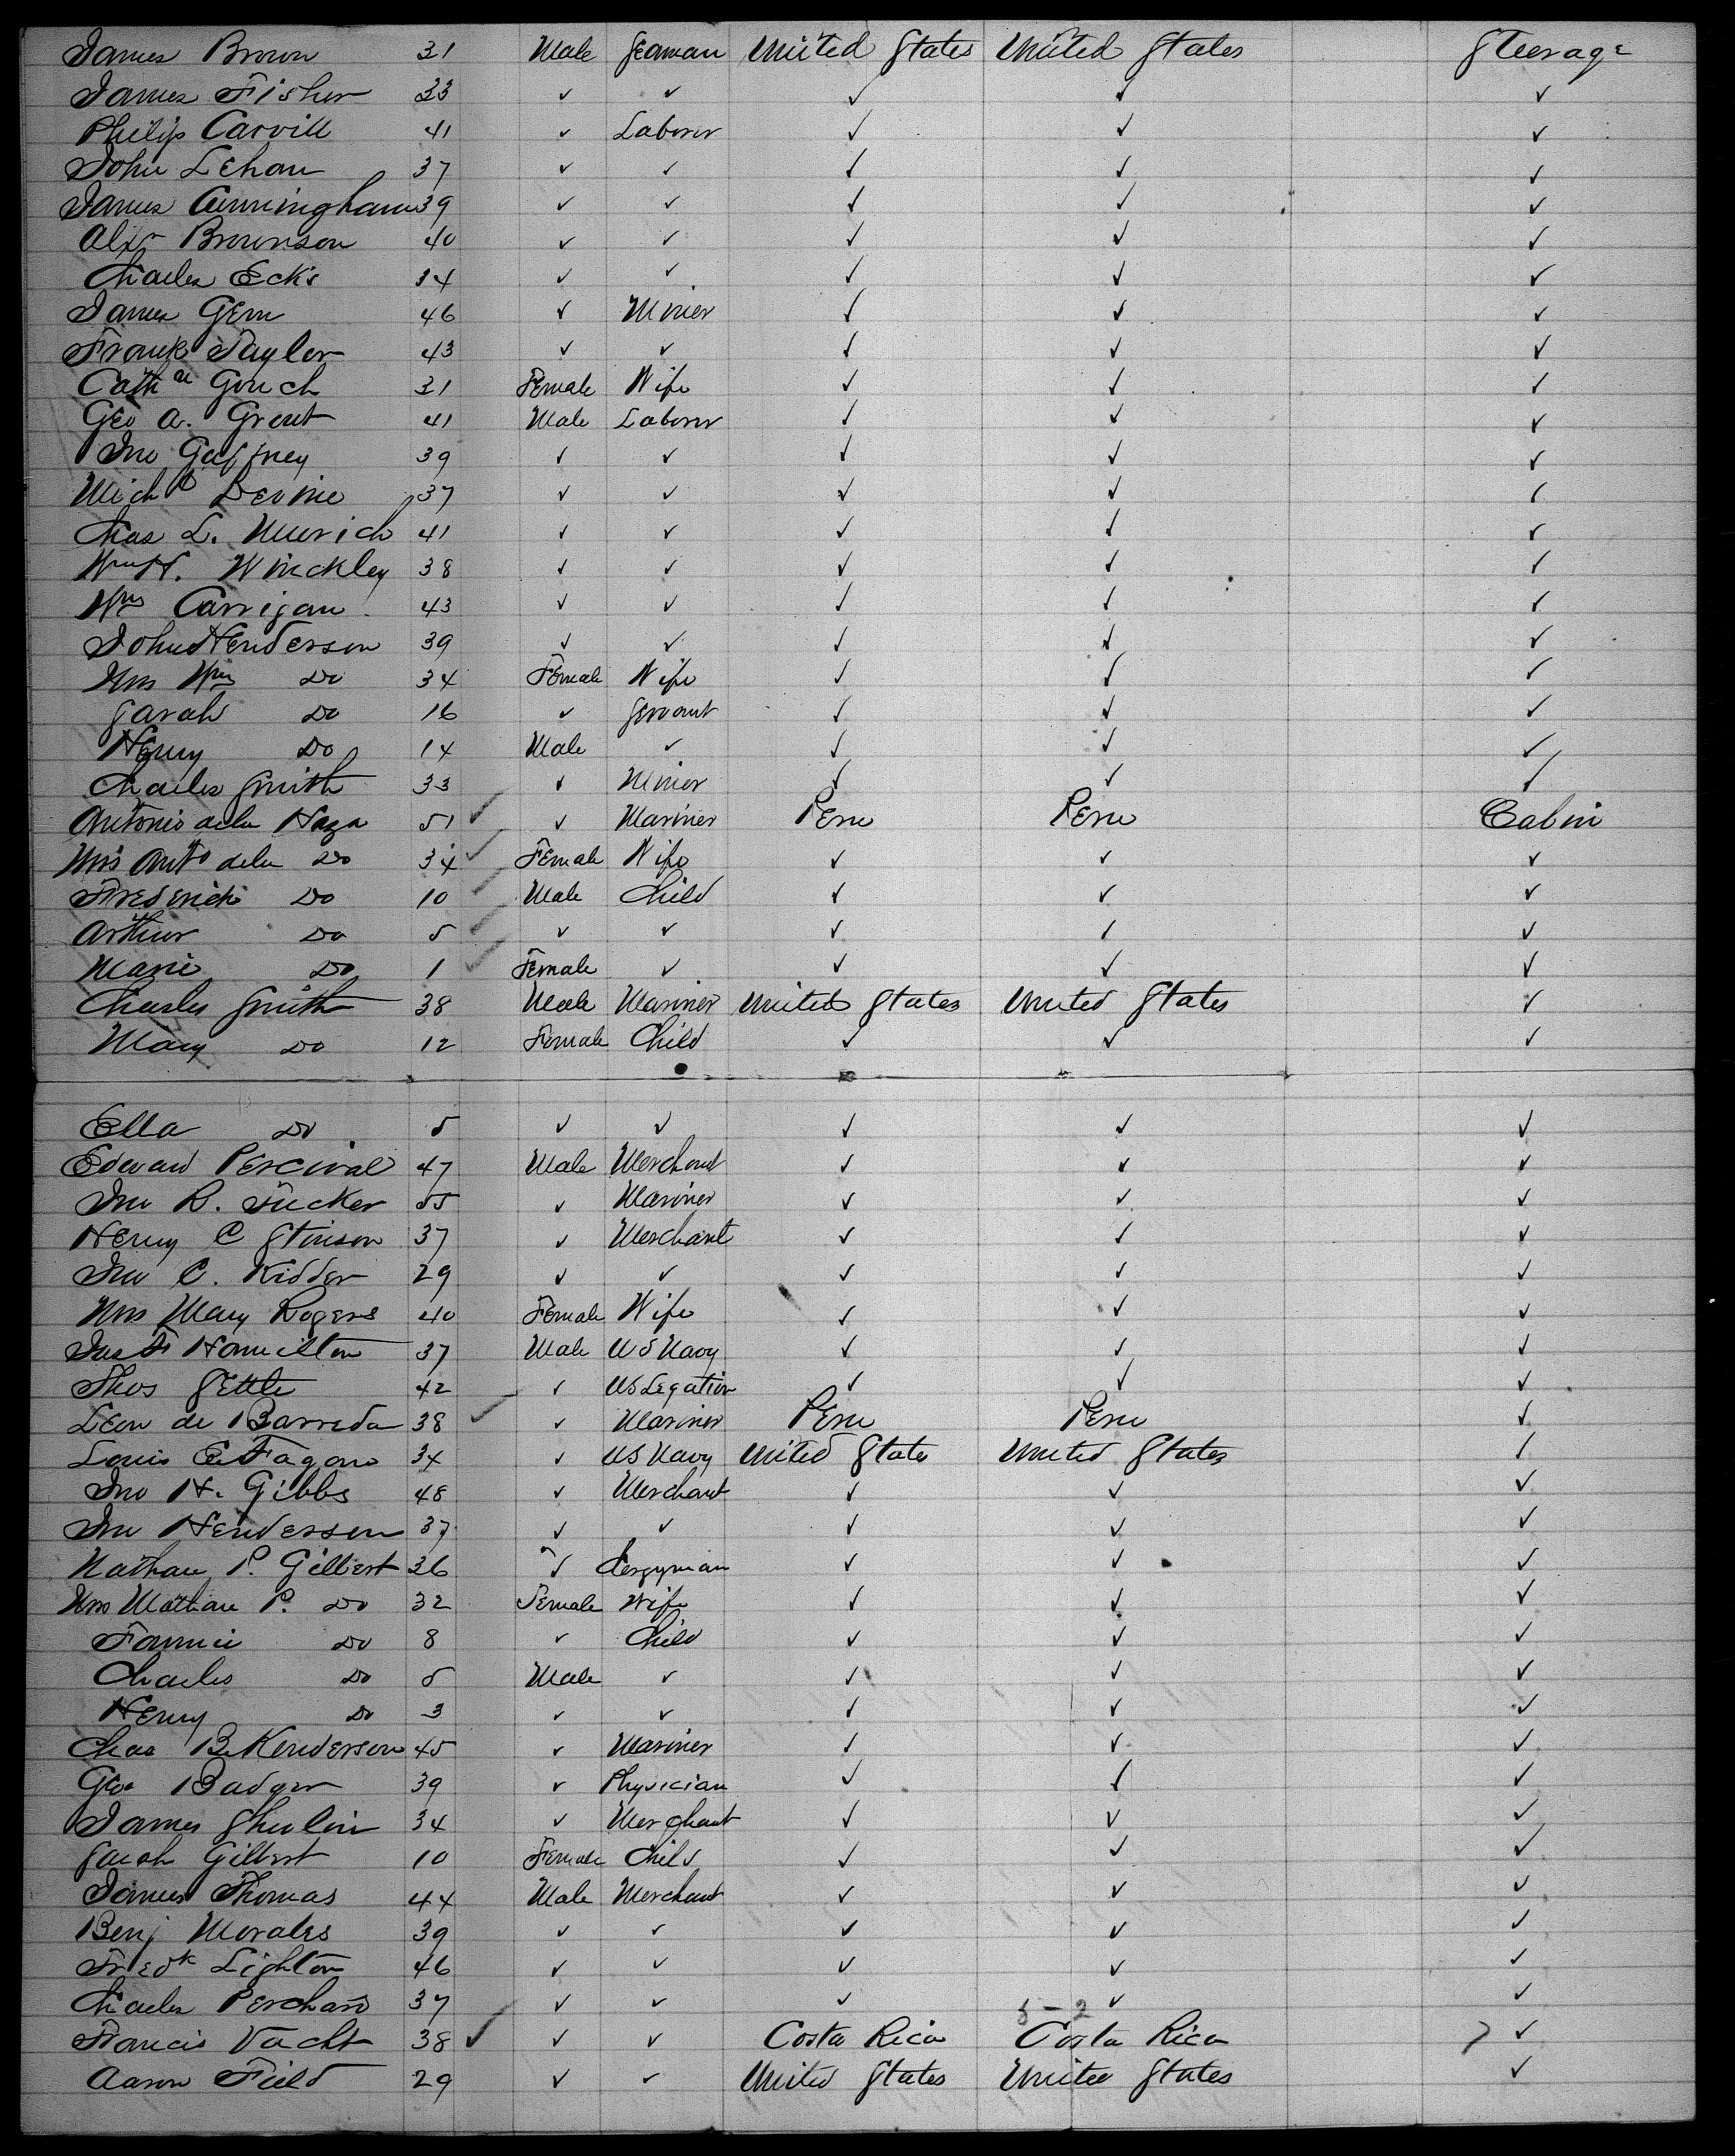 James Brown 31 Male Seaman United States United States Steerage
James Fisher 33 ✓ ✓ ✓ ✓ ✓
Philip Carvill 41 ✓ Laborer ✓ ✓ ✓
John Lehan 37 ✓ ✓ ✓ ✓ ✓
James Cunningham 39 ✓ ✓ ✓ ✓ ✓
Alexr Brownson 40 ✓ ✓ ✓ ✓ ✓
Charles Ecks 34 ✓ ✓ ✓ ✓ ✓
James Gem 46 ✓ Miner ✓ ✓ ✓
Frank Taylor 43 ✓ ✓ ✓ ✓ ✓
Cath Gouch 31 Female Wife ✓ ✓ ✓
Geo A. Grent 41 Male Laborer ✓ ✓ ✓
Jno Gaffney 39 ✓ ✓ ✓ ✓ ✓
Michl Devine 37 ✓ ✓ ✓ ✓ ✓
Chas L. 41 ✓ ✓ ✓ ✓ ✓
Wm H. Winckley 38 ✓ ✓ ✓ ✓ ✓
Wm Carrigan 43 ✓ ✓ ✓ ✓ ✓
John Henderson 39 ✓ ✓ ✓ ✓ ✓
Mrs Wm Do 34 Female Wife ✓ ✓ ✓
Sarah Do 16 ✓ Servant ✓ ✓ ✓
Henry Do 14 Male ✓ ✓ ✓ ✓
Charles Smith 33 ✓ Miner ✓ ✓ ✓
Antonio dela Haza 51 ✓ ✓ Mariner Peru Peru Cabin
Mrs Anto dela Do 34 ✓ Female Wife ✓ ✓ ✓
Frederick Do 10 ✓ Male Child ✓ ✓ ✓
Arthur Do 5 ✓ ✓ ✓ ✓ ✓ ✓
Marie Do 1 ✓ Female ✓ ✓ ✓ ✓
Charles Smith 38 Male Mariner United States United States ✓
Mary Do 12 Female Child ✓ ✓ ✓
Ella Do 5 ✓ ✓ ✓ ✓ ✓
Edward Percival 47 Male Merchant ✓ ✓ ✓
Jno R. Tucker 55 ✓ Mariner ✓ ✓ ✓
Henry C Stinson 37 ✓ Merchant ✓ ✓ ✓
Jno C. Kidder 29 ✓ ✓ ✓ ✓ ✓
Mrs Mary Rogers 40 Female Wife ✓ ✓ ✓
Jas F Hamilton 37 Male U S Navy ✓ ✓ ✓
Thos Settle 42 ✓ US Legation ✓ ✓ ✓
Leon de Barreda 38 ✓ ✓ Mariner Peru Peru ✓
Louis E. Fagan 34 ✓ US Navy United State United States ✓
Jno H. Gibbs 48 ✓ Merchant ✓ ✓ ✓
Jno Henderson 37 ✓ ✓ ✓ ✓ ✓
Nathan P. Gilbert 36 ✓ Clergyman ✓ ✓ ✓
Mrs Nathan P. Do 32 Female Wife ✓ ✓ ✓
Fannie Do 8 ✓ Child ✓ ✓ ✓
Charles Do 5 Male ✓ ✓ ✓ ✓
Henry Do 3 ✓ ✓ ✓ ✓ ✓
Chas B. Kenderson 45 ✓ Mariner ✓ ✓ ✓
Geo Badger 39 ✓ Physician ✓ ✓ ✓
James 34 ✓ Merchant ✓ ✓ ✓
Sarah Gilbert 10 Female Child ✓ ✓ ✓
James Thomas 44 Male Merchant ✓ ✓ ✓
Benj Morales 39 ✓ ✓ ✓ ✓ ✓
Fredk Lighton 46 ✓ ✓ ✓ ✓ ✓
Charles Perchard 37 ✓ ✓ ✓ ✓ ✓
Francis Vacht 38 ✓ ✓ ✓ Costa Rica Costa Rica ✓
Aaron Field 29 ✓ ✓ United States United States ✓